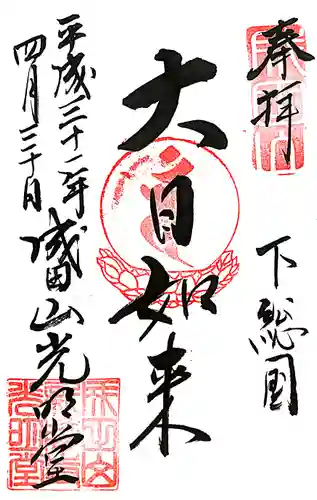 奉拝
下総国
大日如来
平成三十一年
四月三十日
成田山光明堂